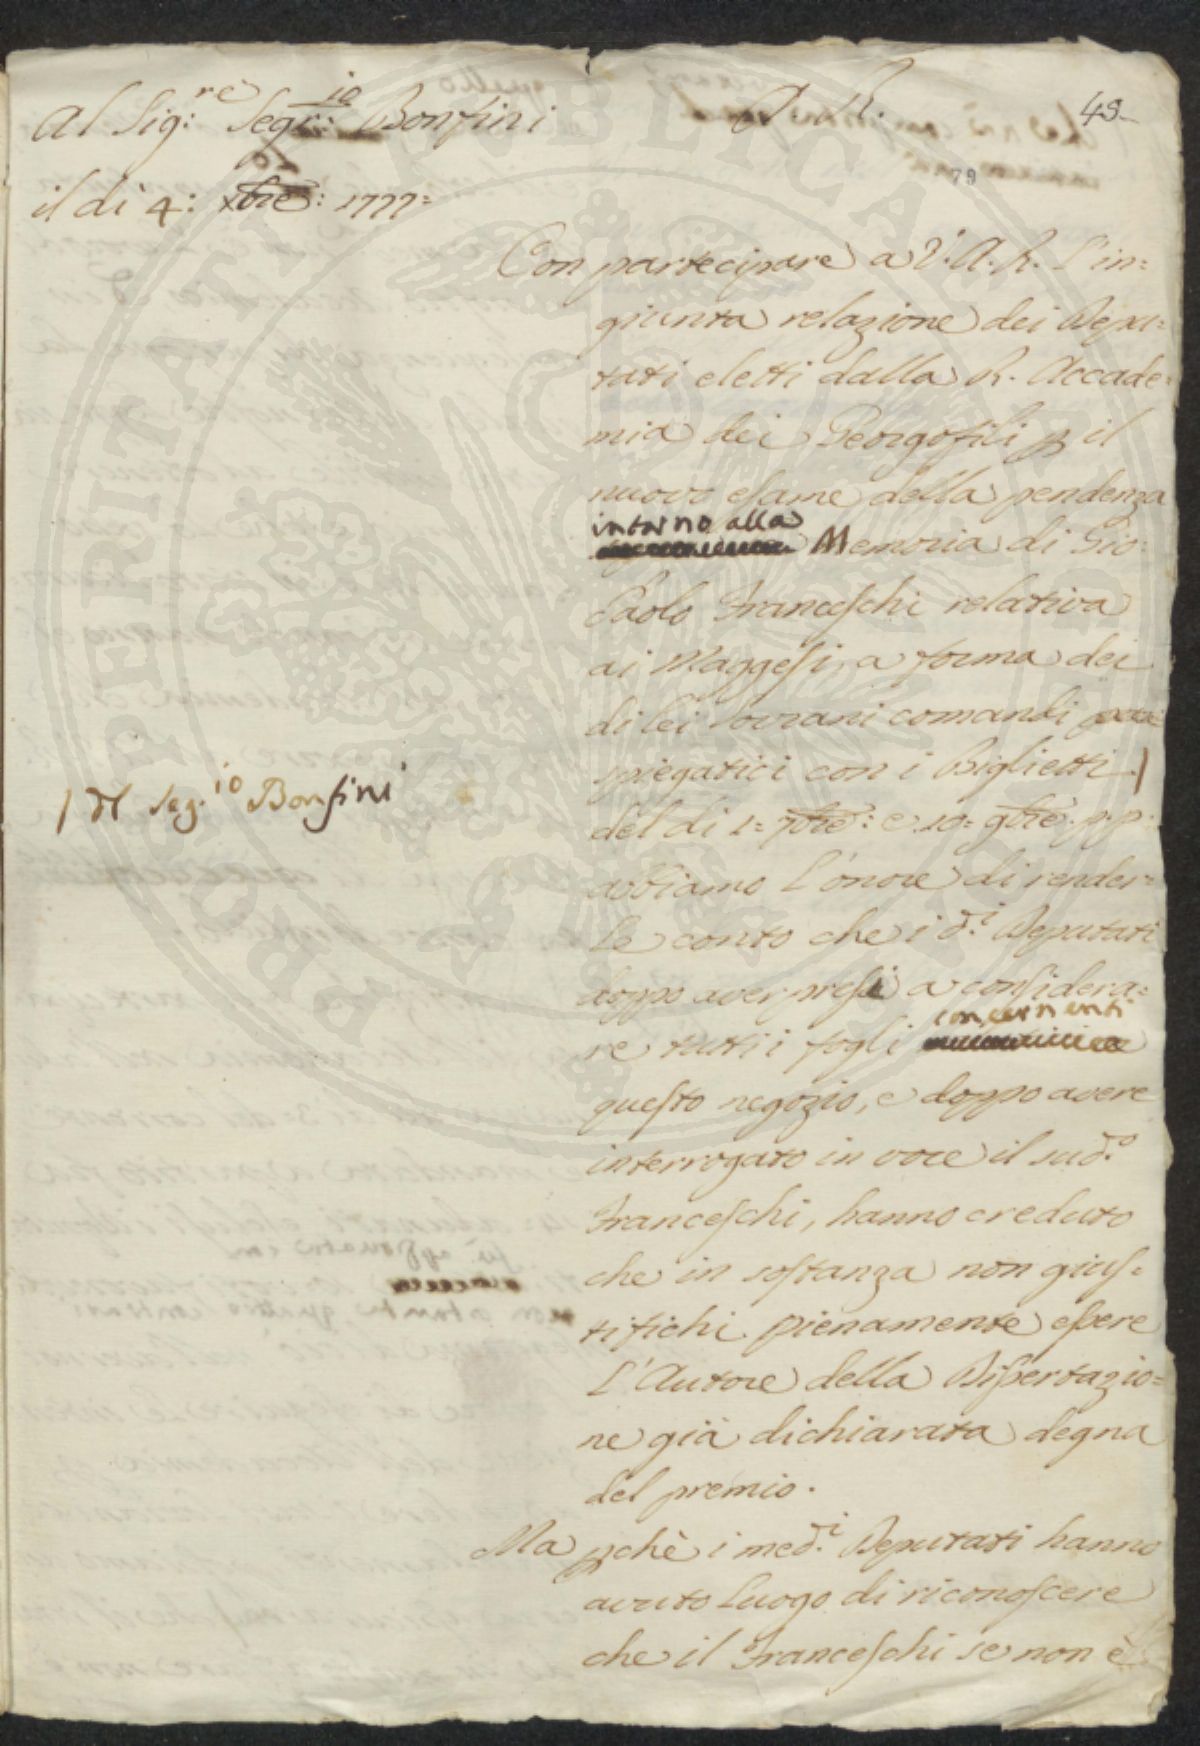 Al Sig:re Segr:io Bonfini
il dì 4: Xbre: 1777=
A. R.
48.
79
Con partecipare a V. A. R. l'in=
giunta relazione dei Depu=
tati eletti dalla R. Accade=
mia dei Georgofili p il
nuovo esame della pendenza
intorno alla
Memoria di Gio:
Paolo Franceschi relativa
ai Maggesi, a forma dei
di lei Sovrani comandi
spiegatici con i Biglietti /
del dì 1= 7bre: e 10= 9bre. p.p.
/ Del Seg.io Bonfini
abbiamo l'onore di render=
le conto che i d.i Deputati
doppo aver presi a considera=
concernenti
re tutti i fogli
questo negozio, e doppo avere
interrogato in voce il sud.o
Franceschi, hanno creduto
che in sostanza non gius=
tifichi pienamente essere
l'Autore della Dissertazio=
ne già dichiarata degna
del premio.
Ma pchè i med.i Deputati hanno
avuto luogo di riconoscere
che il Franceschi se non è
PROPERITATI PUBLICAE